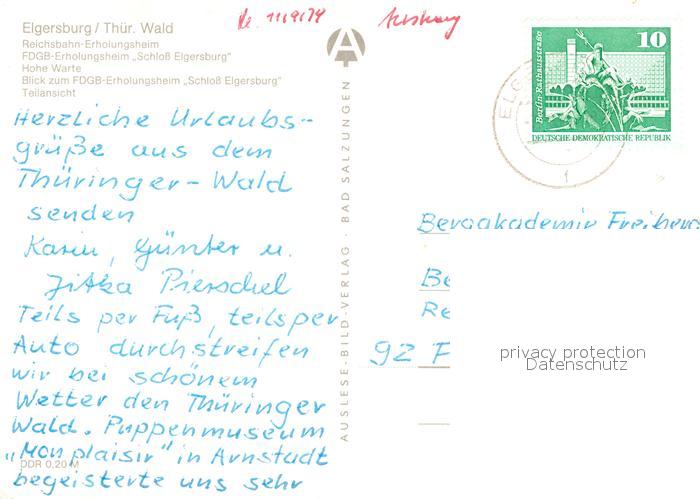 Elgersburg / Thür. Wald
Reichsbahn-Erholungsheim
FDGB-Erholungsheim „Schloß Elgersburg"
Hohe Warte
Blick zum FDGB-Erholungsheim „Schloß Elgersburg"
Teilansicht
Herzliche Urlaubs-
grüße aus dem
Thüringer-Wald
senden
Karin, Günter u.
Jitka Pierschel
Teils per Fuß, teilsper
Auto durchstreifen
wir bei schönem
Wetter den Thüringer
Wald. Puppenmuseum
„Mon plaisir" in Arnstadt
begeisterte uns sehr
DDR 0,20 M
AUSLESE-BILD-VERLAG · BAD SALZUNGEN
10
Berlin·Rathausstraße
DEUTSCHE·DEMOKRATISCHE REPUBLIK
Bergakademie Freiberg
Be
Re
92 F
privacy protection
Datenschutz